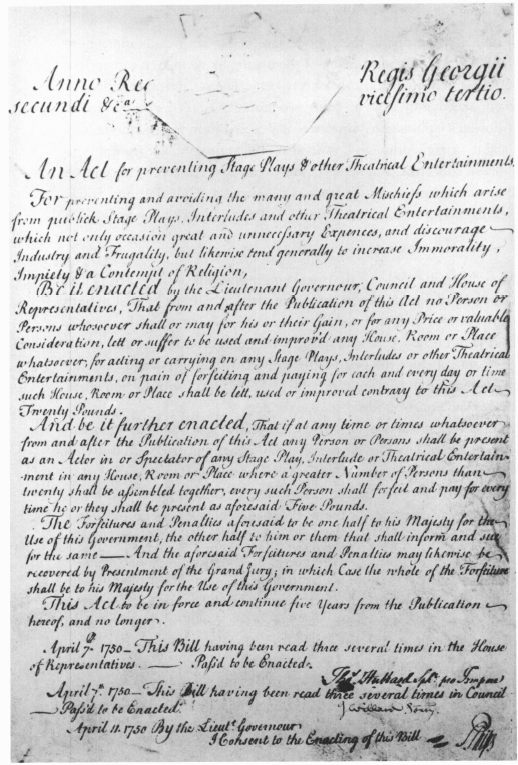 Anno Reg
Regis Georgii
secundi &ca
vicesimo tertio.
An Act for preventing Stage Plays & other Theatrical Entertainments.
For preventing and avoiding the many and great Mischiefs which arise
from publick Stage Plays, Interludes and other Theatrical Entertainments,
which not only occasion great and unnecessary Expences, and discourage
Industry and Frugality, but likewise tend generally to increase Immorality,
Impiety & a Contempt of Religion,
Be it enacted by the Lieutenant Governour, Council and House of
Representatives, That from and after the Publication of this Act no Person or
Persons whosoever shall or may for his or their Gain, or for any Price or valuable
Consideration, lett or suffer to be used and improv'd any House, Room or Place
whatsoever, for acting or carrying on any Stage Plays, Interludes or other Theatrical
Entertainments, on pain of forfeiting and paying for each and every day or time
such House, Room or Place shall be lett, used or improved contrary to this Act
Twenty Pounds.
And be it further enacted, That if at any time or times whatsoever
from and after the Publication of this Act any Person or Persons shall be present
as an Actor in or Spectator of any Stage Play, Interlude or Theatrical Entertain-
ment in any House, Room or Place where a greater Number of Persons than
twenty shall be assembled together, every such Person shall forfeit and pay for every
time he or they shall be present as aforesaid Five Pounds.
The Forfeitures and Penalties aforesaid to be one half to his Majesty for the
Use of this Government, the other half to him or them that shall inform and sue
for the same — And the aforesaid Forfeitures and Penalties may likewise be
recovered by Presentment of the Grand Jury; in which Case the whole of the Forfeiture
shall be to his Majesty for the Use of this Government.
This Act to be in force and continue five Years from the Publication
hereof, and no longer.
April 7th 1750 — This Bill having been read three several times in the House
of Representatives. — Pass'd to be Enacted.
Thos. Hubbard Spkr. pro Tempore
April 7th 1750 — This Bill having been read three several times in Council
— Pass'd to be Enacted.
J Willard Secry.
April 11. 1750 By the Lieut. Governour
I Consent to the Enacting of this Bill
S Phips